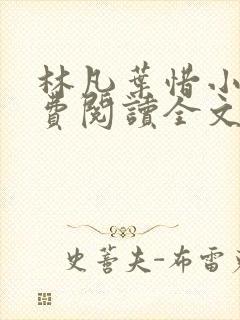 林凡葉惜小
費閱讀全文
史蒼夫-布雷